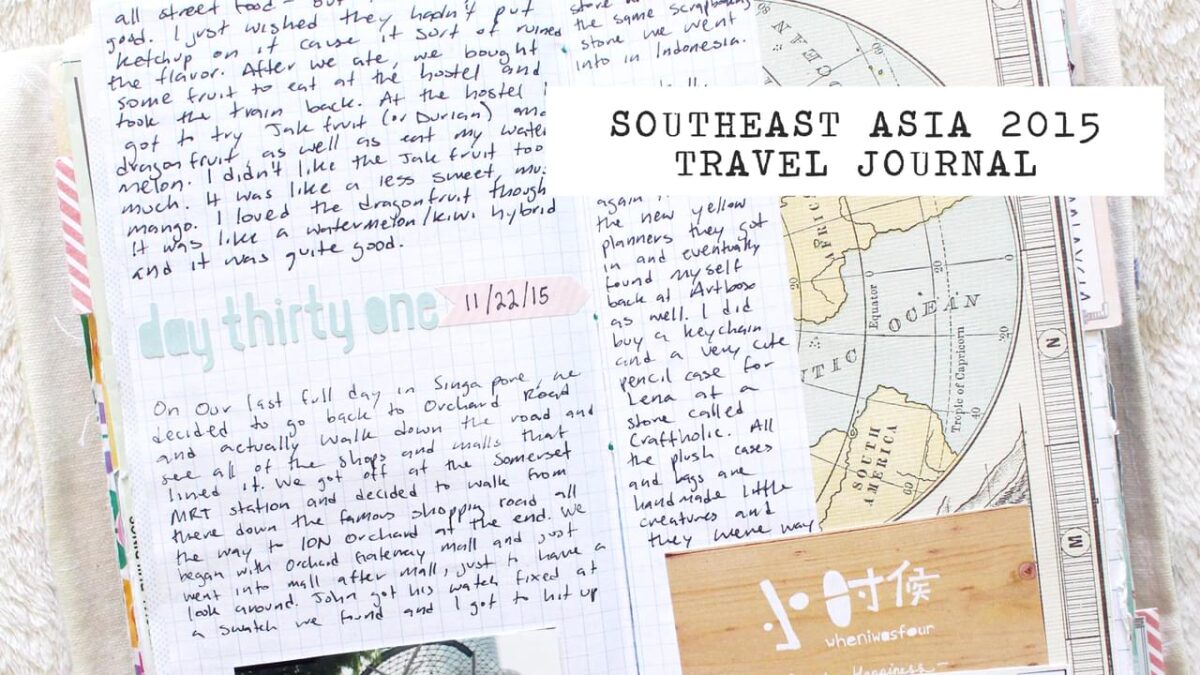 all street food - but
good. I just wished they hadn't put
ketchup on it cause it sort of ruined
the flavor. After we ate, we bought
some fruit to eat at the hostel and
took the train back. At the hostel I
got to try Jakfruit (or Durian) and
dragonfruit, as well as eat my water
melon. I didn't like the Jakfruit too
much. It was like a less sweet,
mango. I loved the dragonfruit though
It was like a watermelon/kiwi hybrid
and it was quite good.
day thirty one 11/22/15
On our last full day in Singapore, we
decided to go back to Orchard Road
and actually walk down the road and
see all of the shops and malls that
lined it. We got off at the Somerset
MRT station and decided to walk from
there down the famous shopping road all
the way to ION Orchard at the end. We
began with Orchard Gateway mall and just
went into mall after mall, just to have a
look around. John got his watch fixed at
a swatch we found and I got to hit up
the same scrapbooking
store we went
into in Indonesia.
SOUTHEAST ASIA 2015
TRAVEL JOURNAL
again
the new yellow
planners they got
in and eventually
found myself
back at Artbox
as well. I did
buy a keychain
and a very cute
pencil case for
Lena at a
store called
Craftholic. All
the plush cases
and bags are
handmade little
creatures and
they were way
OCEAN
AFRICA
Equator
OCEAN
Tropic of Capricorn
SOUTH
AMERICA
0
0
20
20
40
60
N
M
小时候
wheniwasfour
Happiness